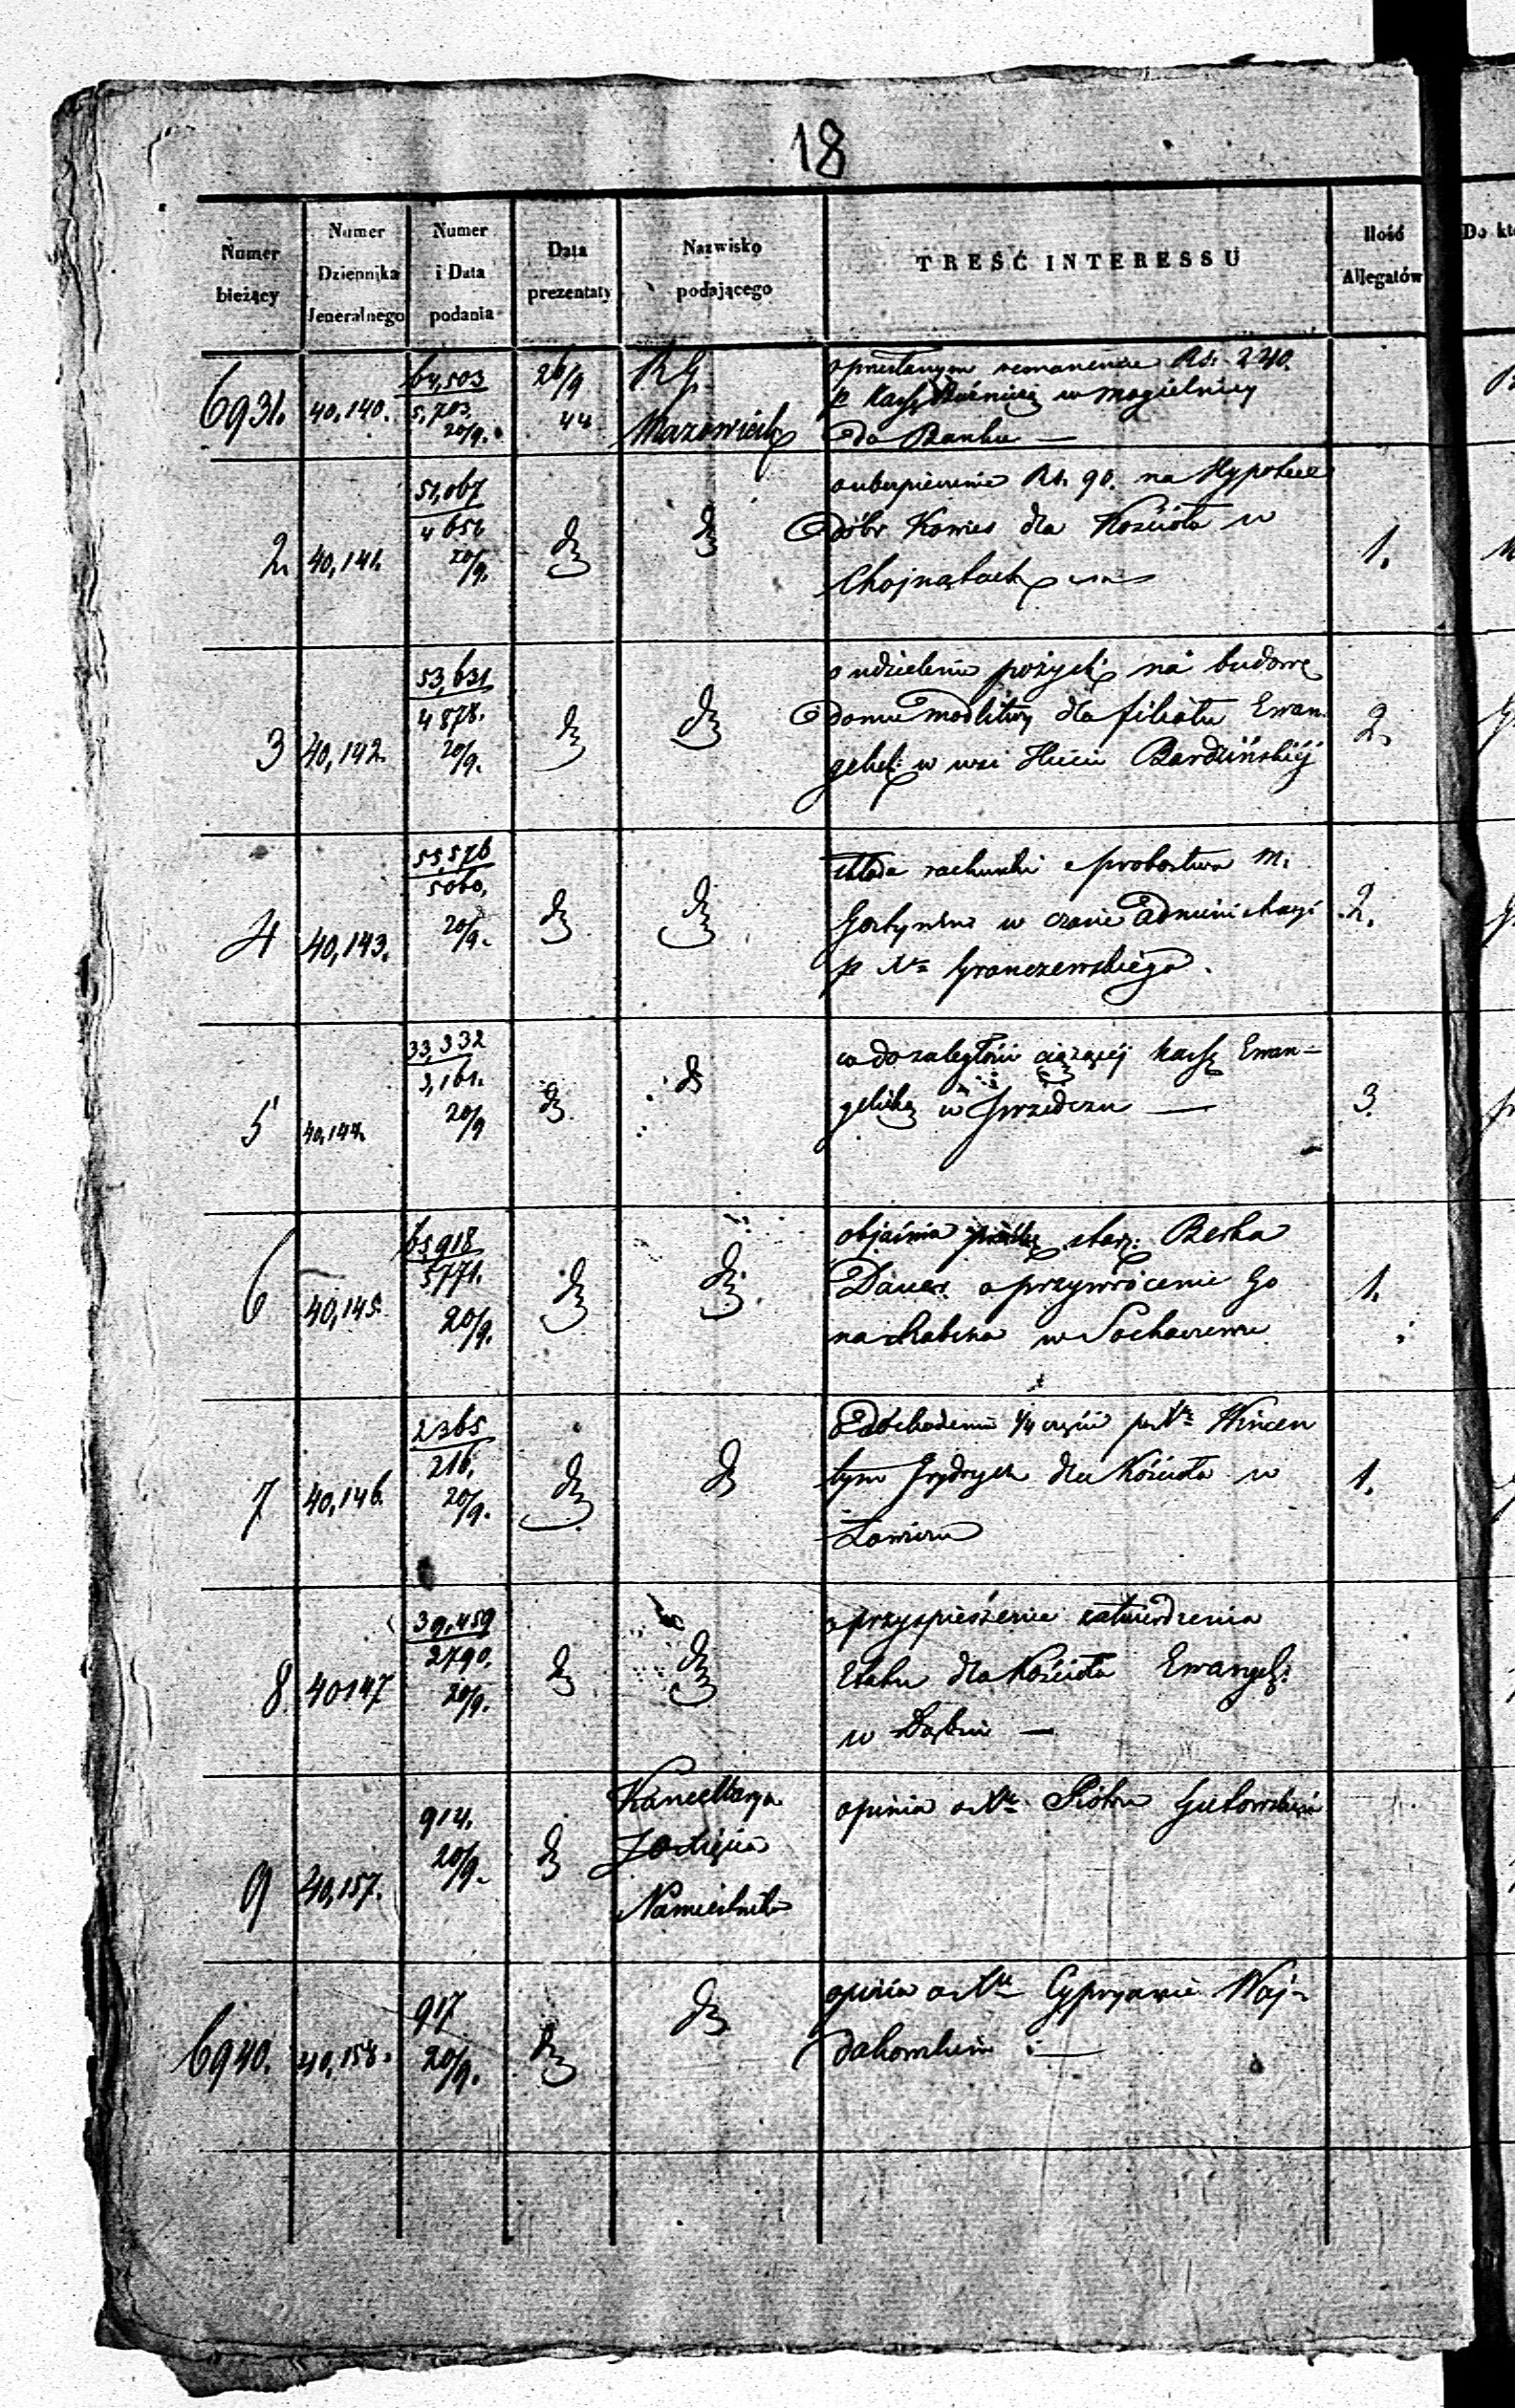 18
Numer bieżący
Numer Dziennika Jeneralnego
Numer i Data podania
Data prezentaty
Nazwisko podającego
TREŚĆ INTERESSU
Ilość Allegatów
Do kt
6931. 40,140. 64,503 5,703. 20/9. 26/9 44 RG. Mazowiecki
o przesłanym remanencie Rs. 2210.
p Kassę Bóżniczą w Mogielnicy
do Banku —
2. 40,141. 51,067 4656 20/9. d d
o ubezpieczenie Rs. 90. na Hypotece
dóbr Kowies dla Kościoła w
Chojnatach
1.
3 40,142. 53,631 4878. 20/9. d d
o udzielenie pożyczki na budowę
domu modlitwy dla filiału Ewan
gelick: w wsi Hucie Bardzińskiej
2.
4 40,143. 55,576 5060. 20/9. d d
składa rachunki z probostwa m.
Gostynina w czasie administracyi
p Xa Gronczewskiego.
2.
5 40,144. 33,332 3,161. 20/9 d d
co do zaległości ciążącej kassę Ewan=
gelicką w Przedczu —
3.
6 40,145. 65,918 5771. 20/9. d d
objaśnia prośbę starz: Berka
Dauer o przywrócenie Go
na Rabina w Sochaczewie
1.
7 40,146. 2365 216. 20/9. d d
o dochodzeniu 1/4 części po Xe Wincen
tym Frydrych dla Kościoła w
Łowiczu
1.
8. 40147 39,459 2790. 20/9. d d
o przyspieszenie zatwierdzenia
Etatu dla Kościoła Ewangel:
w Dąbiu —
9 40,157. 914. 20/9. d Kancellarya Xcia Namiestnika
opinia o Xu Piotrze Gutowskim
6940. 40,158. 917 20/9. d d
opinia o Xu Cypryanie Waj=
dakowskim —